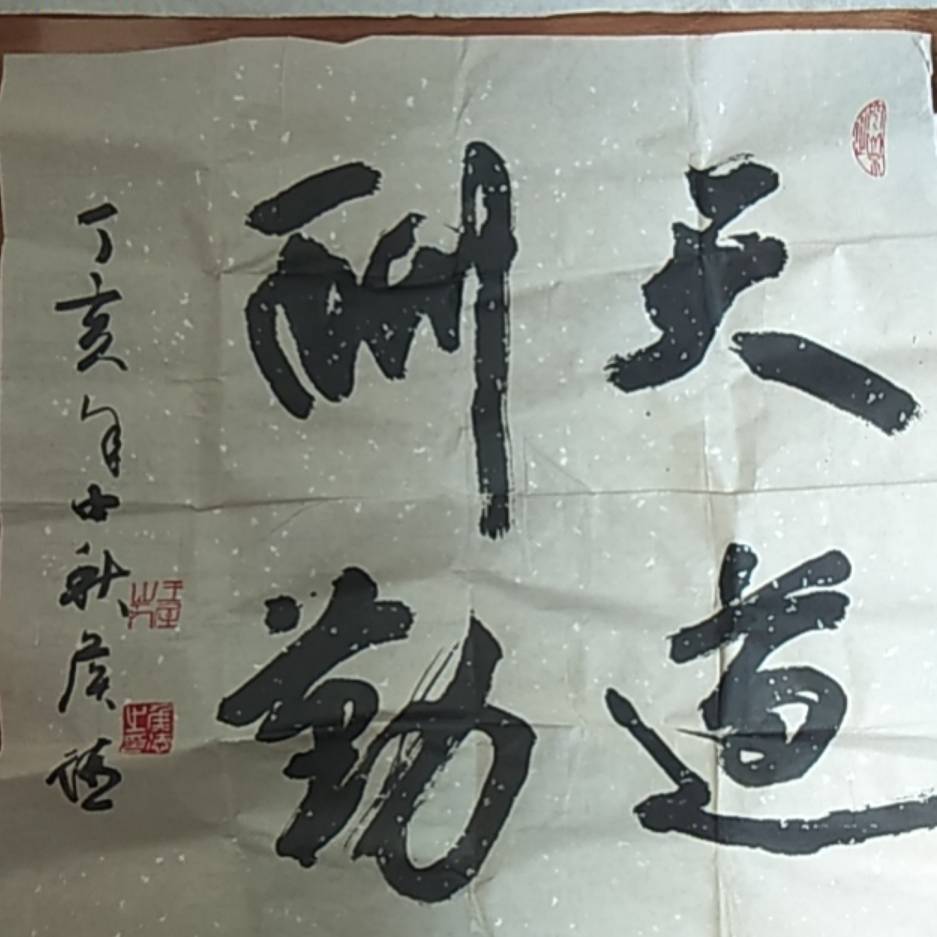 天道
酬勤
丁亥年中秋侯德